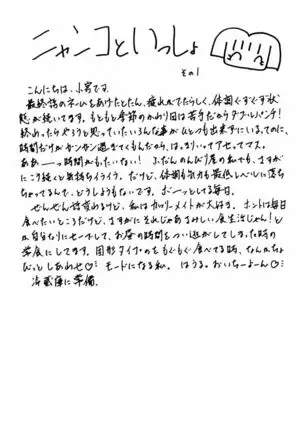 ニャンコといっしょ
その1
こんにちは、小宮です。
最終話のネームをあげたとたん、疲れがでたらしく、体調ぐずぐず状
態が続いてます。もともと季節のかわり目は苦手だからダブルパンチ!
終わったらやろうと思っていたいろんな事がひとつも出来ずにいる。てのに、
時間だけがガンガン過ぎてくもんだから、はっきりいってアセってマス。
ああーっ時間がもったいない! ふだんのんびり屋の私でも、さすが
にこう続くと気持ちイライラ。だけど、体調も気力も最低レベルに落ち
ちゃってるんで、どうしようもないです。ボーッとしてる毎日。
ぜんぜん話変わるけど、私はカロリーメイトが大好き。ホントは毎日
食べたいところだけど、さすがにそれじゃあさみしい食生活じゃん!と
自分なりにセーブして、お昼の時間をつい逃がしてしまった時の
昼食にしてます。固形タイプのをもぐもぐ食べてる時、なんかちょ
びっとしあわせ♡ モードになる私。はうる。おいちーよーん♡
冷蔵庫に常備。